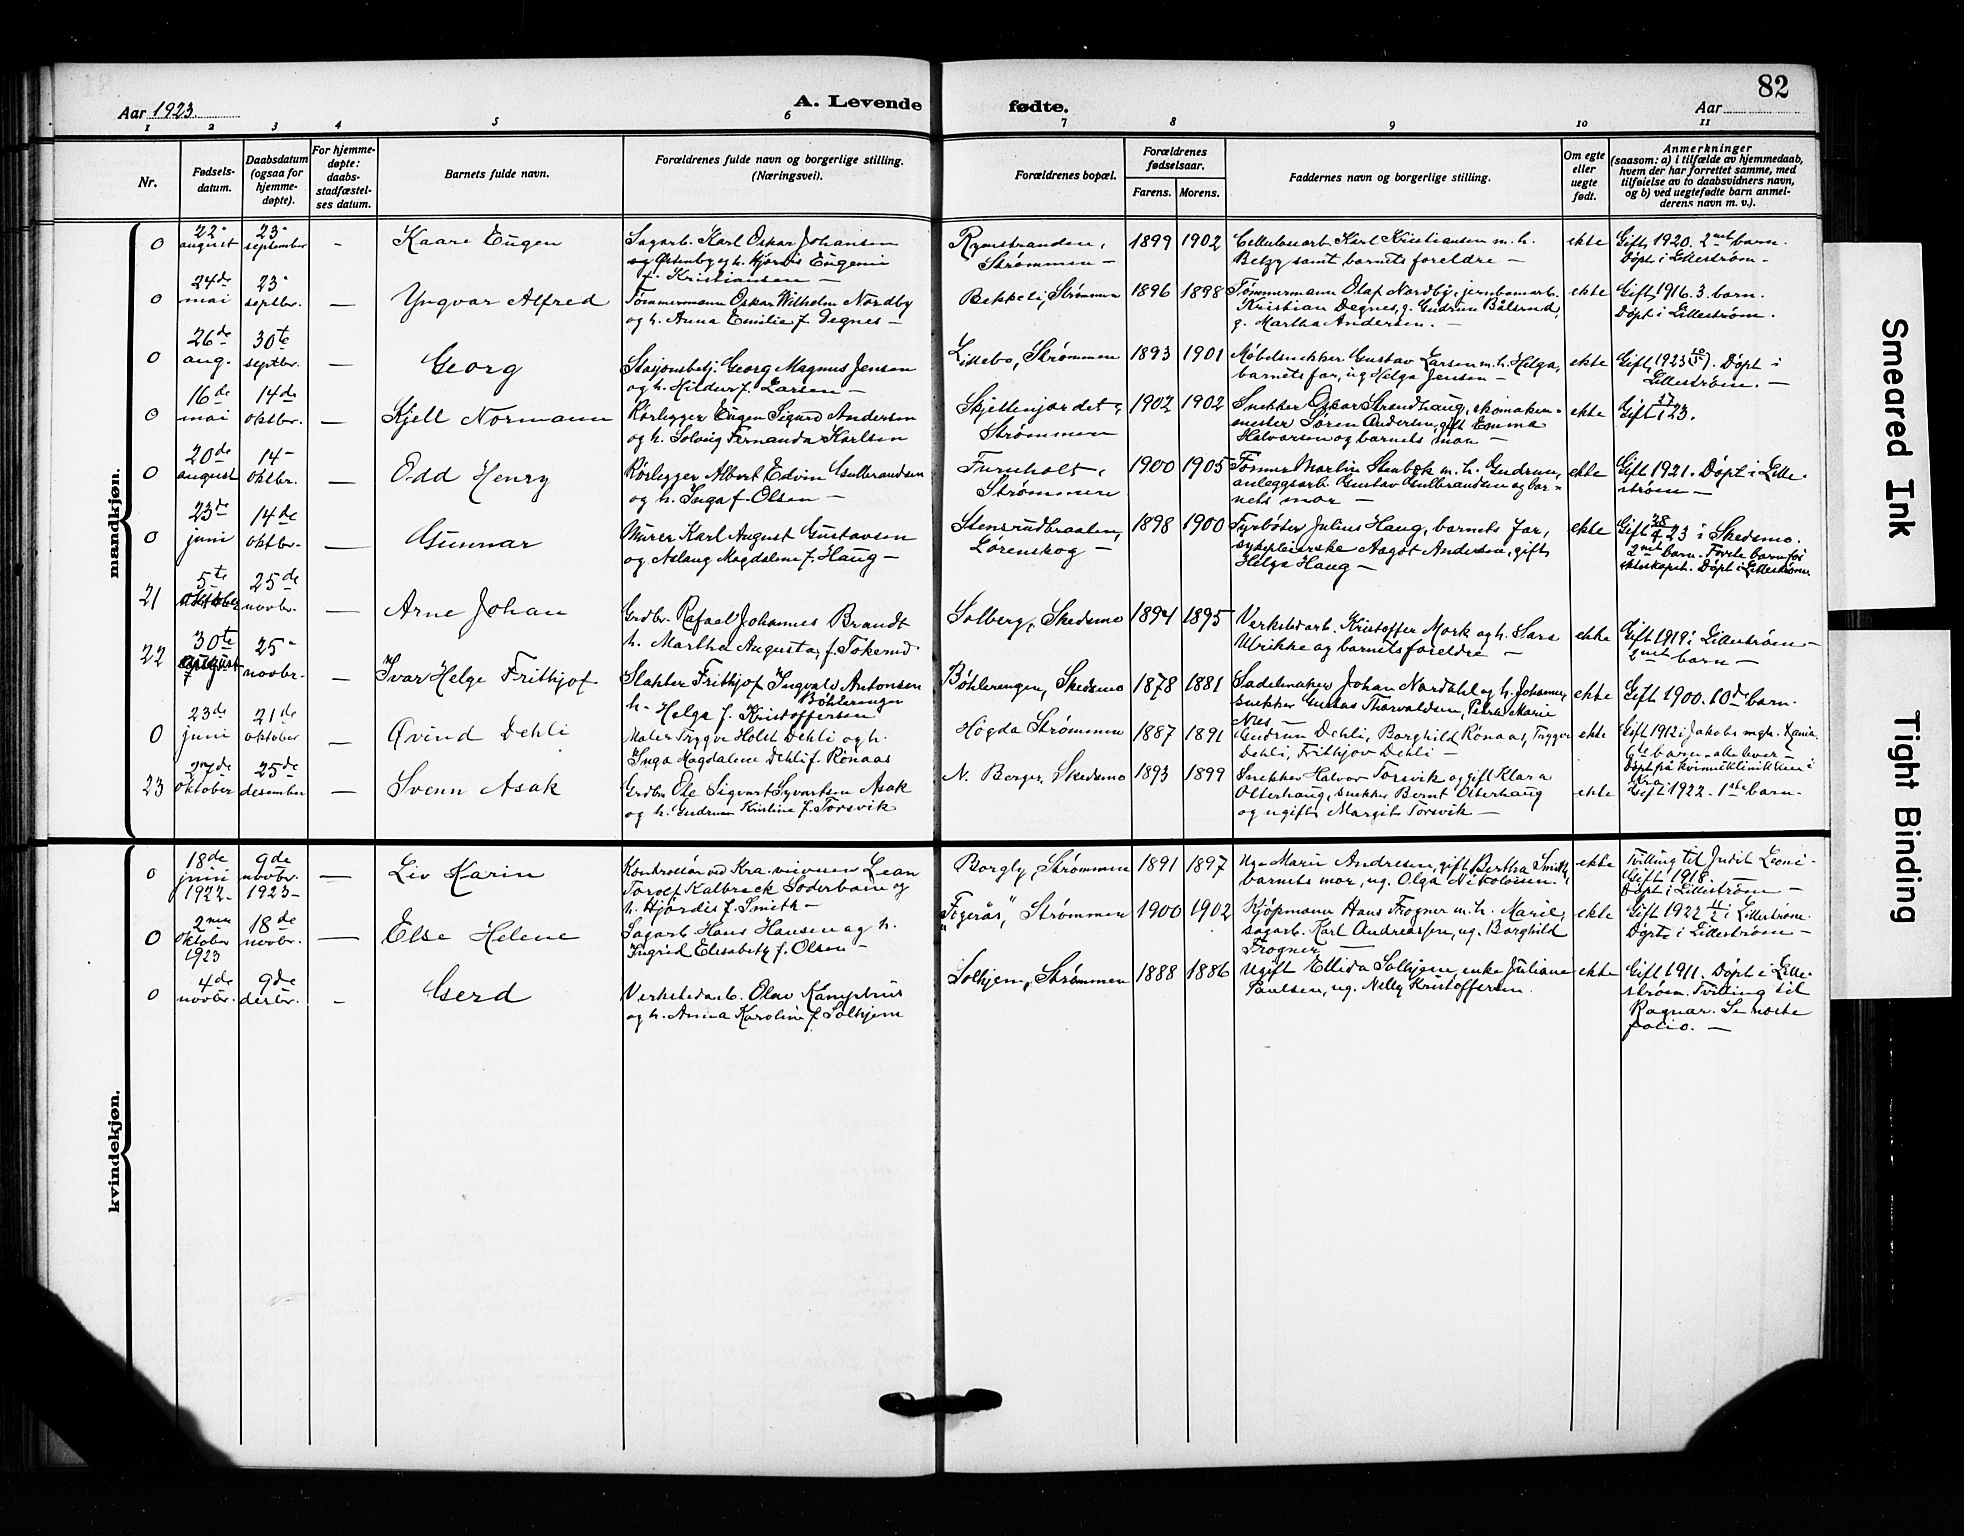 82
Aar 1923. A. Levende fødte. Aar
1 2 3 4 5 6 7 8 9 10 11
Nr.
Fødsels-
datum.
Daabsdatum
(ogsaa for
hjemme-
døpte).
For hjemme-
døpte:
daabs-
stadfæstel-
ses datum.
Barnets fulde navn.
Forældrenes fulde navn og borgerlige stilling.
(Næringsvei).
Forældrenes bopæl.
Forældrenes
fødselsaar.
Farens. Morens.
Faddernes navn og borgerlige stilling.
Om egte
eller
uegte
født.
Anmerkninger
(saasom: a) i tilfælde av hjemmedaab,
hvem der har forrettet samme, med
tilføielse av to daabsvidners navn,
og b) ved uegtefødte barn anmel-
derens navn m. v.).
mandkjøn.
0
22-
august
23-
september
-
Kaare Eugen
Sagarb. Karl Oskar Johansen
og Østenby og h. Hjørdis Eugenie
f. Kristiansen -
Strømmen -
1899 1902
Cellulosearb. Karl Kristiansen m. h.
Betzy samt barnets foreldre -
ekte
Gift 1920. 2net barn.
Døpt i Lillestrøm -
0
24de
mai
23-
septbr.
-
Yngvar Alfred
Tømmermann Oskar Wilhelm Nordby
og h. Anna Emilie f. Degnes -
Bekkeli, Strømmen
1896 1898
Tømmermann Olaf Nordby, jernbanearb.
Kristian Degnes, g. Gudrun Bålsrud,
g. Martha Andersen. -
ekte
Gift 1916. 3. barn.
Døpt i Lillestrøm.
0
26de
aug.
30te
septbr.
-
Georg
Stasjonsbetj. Georg Magnus Jensen
og h. Hildur f. Larsen -
Lillebo, Strømmen
1893 1901
Møbelsnekker Gustav Larsen m. h. Helga,
barnets far, ug Helga Jensen -
ekte
Gift 1923 . Døpt i
Lillestrøm. -
0
16de
mai
14de
oktbr.
-
Kjell Normann
Rørlegger Eugen Sigurd Andersen
og h. Solveig Fernanda Karlsen
Skjettenjordet,
Strømmen
1902 1902
Snekker Oskar Strandhaug, skomaker-
mester Søren Andersen, gift Emma
Halvorsen og barnets mor -
ekte
Gift 23.
0
20de
august
14-
oktbr.
-
Odd Henry
Rørlegger Albert Edvin Gulbrandsen
og h. Inga f. Olsen -
Furuholt,
Strømmen
1900 1905
Former Martin Stenbek m. h. Gudrun,
anleggsarb. Gustav Gulbrandsen og bar-
nets mor -
ekte
Gift 1921. Døpt i Lille-
strøm -
0
23de
juni
14de
oktbr.
-
Gunnar
Murer Karl August Gustavsen
og Aslaug Magdalene f. Haug -
Stensrudbraaten,
Lørenskog -
1898 1900
Fyrbøter Julius Haug, barnets far,
sykepleierske Aagot Andersen, gift
Helga Haug -
ekte
Gift 28/4 23 i Skedsmo.
2net barn. Første barn før
ekteskapet. Døpt i Lillestrøm
21
5te
oktober
25de
novbr.
-
Arne Johan
Grdbr. Rafael Johannes Brandt
h. Martha Augusta, f. Tokerud
Solberg, Skedsmo
1894 1895
Verkstedarb. Kristoffer Mork og h. Sara
Ulrikke og barnets foreldre -
ekte
Gift 1919 i Lillestrøm -
2net barn -
22
30te
august
25-
novbr.
-
Ivar Helge Frithjof
Slakter Frithjof Ingvald Antonsen
Bøhlerengen
h. Helga f. Kristoffersen
Bøhlerengen, Skedsmo
1878 1881
Sadelmaker Johan Nordahl og h. Johanne,
snekker Gustav Thorvaldsen, Petra Marie
Næs -
ekte
Gift 1900. 10de barn.
0
23de
juni
21de
oktober
-
Øvind Dehli
Maler Trygve Holst Dehli og h.
Inga Magdalene Dehli f. Rønaas
Høgda Strømmen
1887 1891
Gudrun Dehli, Borghild Rønaas, Trygve
Dehli, Frithjov Dehli -
ekte
Gift 1912 i Jakobs mgh. Krania.
6te barn - alle lever
Døpt på kvinneklinikken i
Kra.
23
27de
oktober
25de
desember
-
Svenn Asak
Grdbr. Ole Sigvart Syvertsen Asak
og h. Gudrun Kristine f. Torsvik
N. Berger, Skedsmo
1893 1899
Snekker Halvor Torsvik og gift Klara
Osterhaug, snekker Bernt Osterhaug
og ugift Margit Torsvik -
ekte
Gift 1922. 1ste barn.
kvindekjøn.
0
18de
juni
1922-
9de
novbr.
1923-
-
Liv Karin
Kontrollør ved Kra. Lean
Torolf Kalbreck Söderbom og
h. Hjørdis f. Smith -
Borgly, Strømmen
1891 1897
Ug. Marie Andresen, gift Bertha Smith,
barnets mor, ug. Olga Nikolaisen.
ekte
Tvilling til Judit Leoni -
Gift 1918.
Døpt i Lillestrøm -
0
2nen
oktober
1923
18de
novbr.
-
Else Helene
Sagarb. Hans Hansen og h.
Ingrid Elisabeth f. Olsen -
"Fogerås", Strømmen
1900 1902
Kjøpmann Hans Frogner m. h. Marie,
sagarb. Karl Andreassen, ug. Borghild
Frogner -
ekte
Gift 1922 i Lillestrøm.
Døpt i Lillestrøm -
0
4de
novbr.
9de
desbr.
-
Gerd
Verkstedarb. Olav Kamphus
og h. Anna Karoline f. Solhjem
Solhjem, Strømmen
1888 1886
Ugift Ellida Solhjem, enke Juliane
Paulsen, ug. Nelly Kristoffersen.
ekte
Gift 1911. Døpt i Lille-
strøm. Tvilling til
Ragnar. Se næste
folio. -
Smeared Ink
Tight Binding